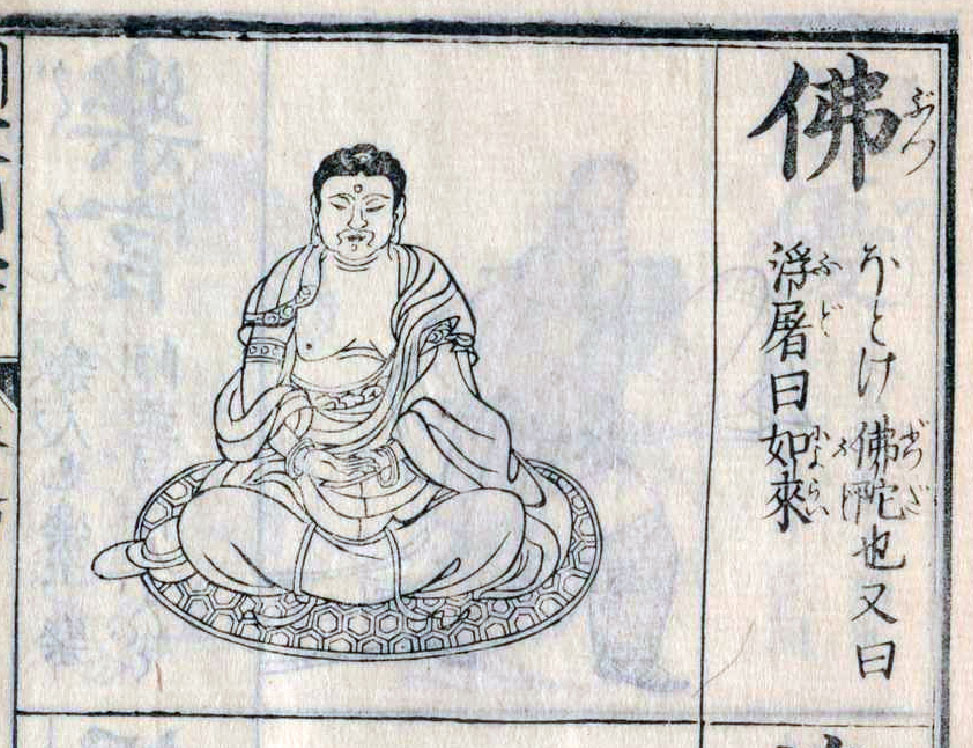 佛 ぶつ
ほとけ 佛陀也又曰
浮屠曰如來
ふと
によらい